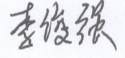 李俊强